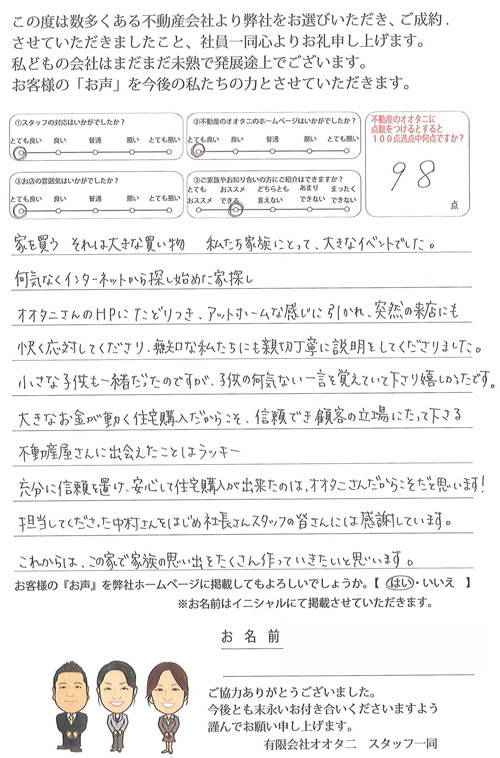 この度は数多くある不動産会社より弊社をお選びいただき、ご成約.
させていただきましたこと、社員一同心よりお礼申し上げます。
私どもの会社はまだまだ未熟で発展途上でございます。
お客様の「お声」を今後の私たちの力とさせていただきます。
①スタッフの対応はいかがでしたか？
とても良い 良い 普通 悪い とても悪い
②不動産のオオタニのホームページはいかがでしたか？
とても良い 良い 普通 悪い とても悪い
③お店の雰囲気はいかがでしたか？
とても良い 良い 普通 悪い とても悪い
③ご家族やお知り合いの方にご紹介はできますか？
とても オススメ どちらとも あまり まったく
オススメ できる 言えない できない できない
不動産のオオタニに
点数をつけるとすると
１００点満点中何点ですか？
98
点
家を買う それは大きな買い物 私たち家族にとって、大きなイベントでした。
何気なくインターネットから探し始めた家探し
オオタニさんのHPにたどりつき、アットホームな感じに引かれ、突然の来店にも
快く応対してくださり、無知な私たちにも親切丁寧に説明をしてくださりました。
小さな子供も一緒だったのですが、子供の何気ない一言を覚えていて下さり嬉しかったです。
大きなお金が動く住宅購入だからこそ、信頼でき顧客の立場にたって下さる
不動産屋さんに出会えたことはラッキー
充分に信頼を置け、安心して住宅購入が出来たのは、オオタニさんだからこそだと思います!
担当してくださった中村さんをはじめ社長さんスタッフの皆さんには感謝しています。
これからは、この家で家族の思い出をたくさん作っていきたいと思います。
お客様の『お声』を弊社ホームページに掲載してもよろしいでしょうか。【 はい・いいえ 】
※お名前はイニシャルにて掲載させていただきます。
お 名 前
ご協力ありがとうございました。
今後とも末永いお付き合いくださいますよう
謹んでお願い申し上げます。
有限会社オオタニ スタッフ一同